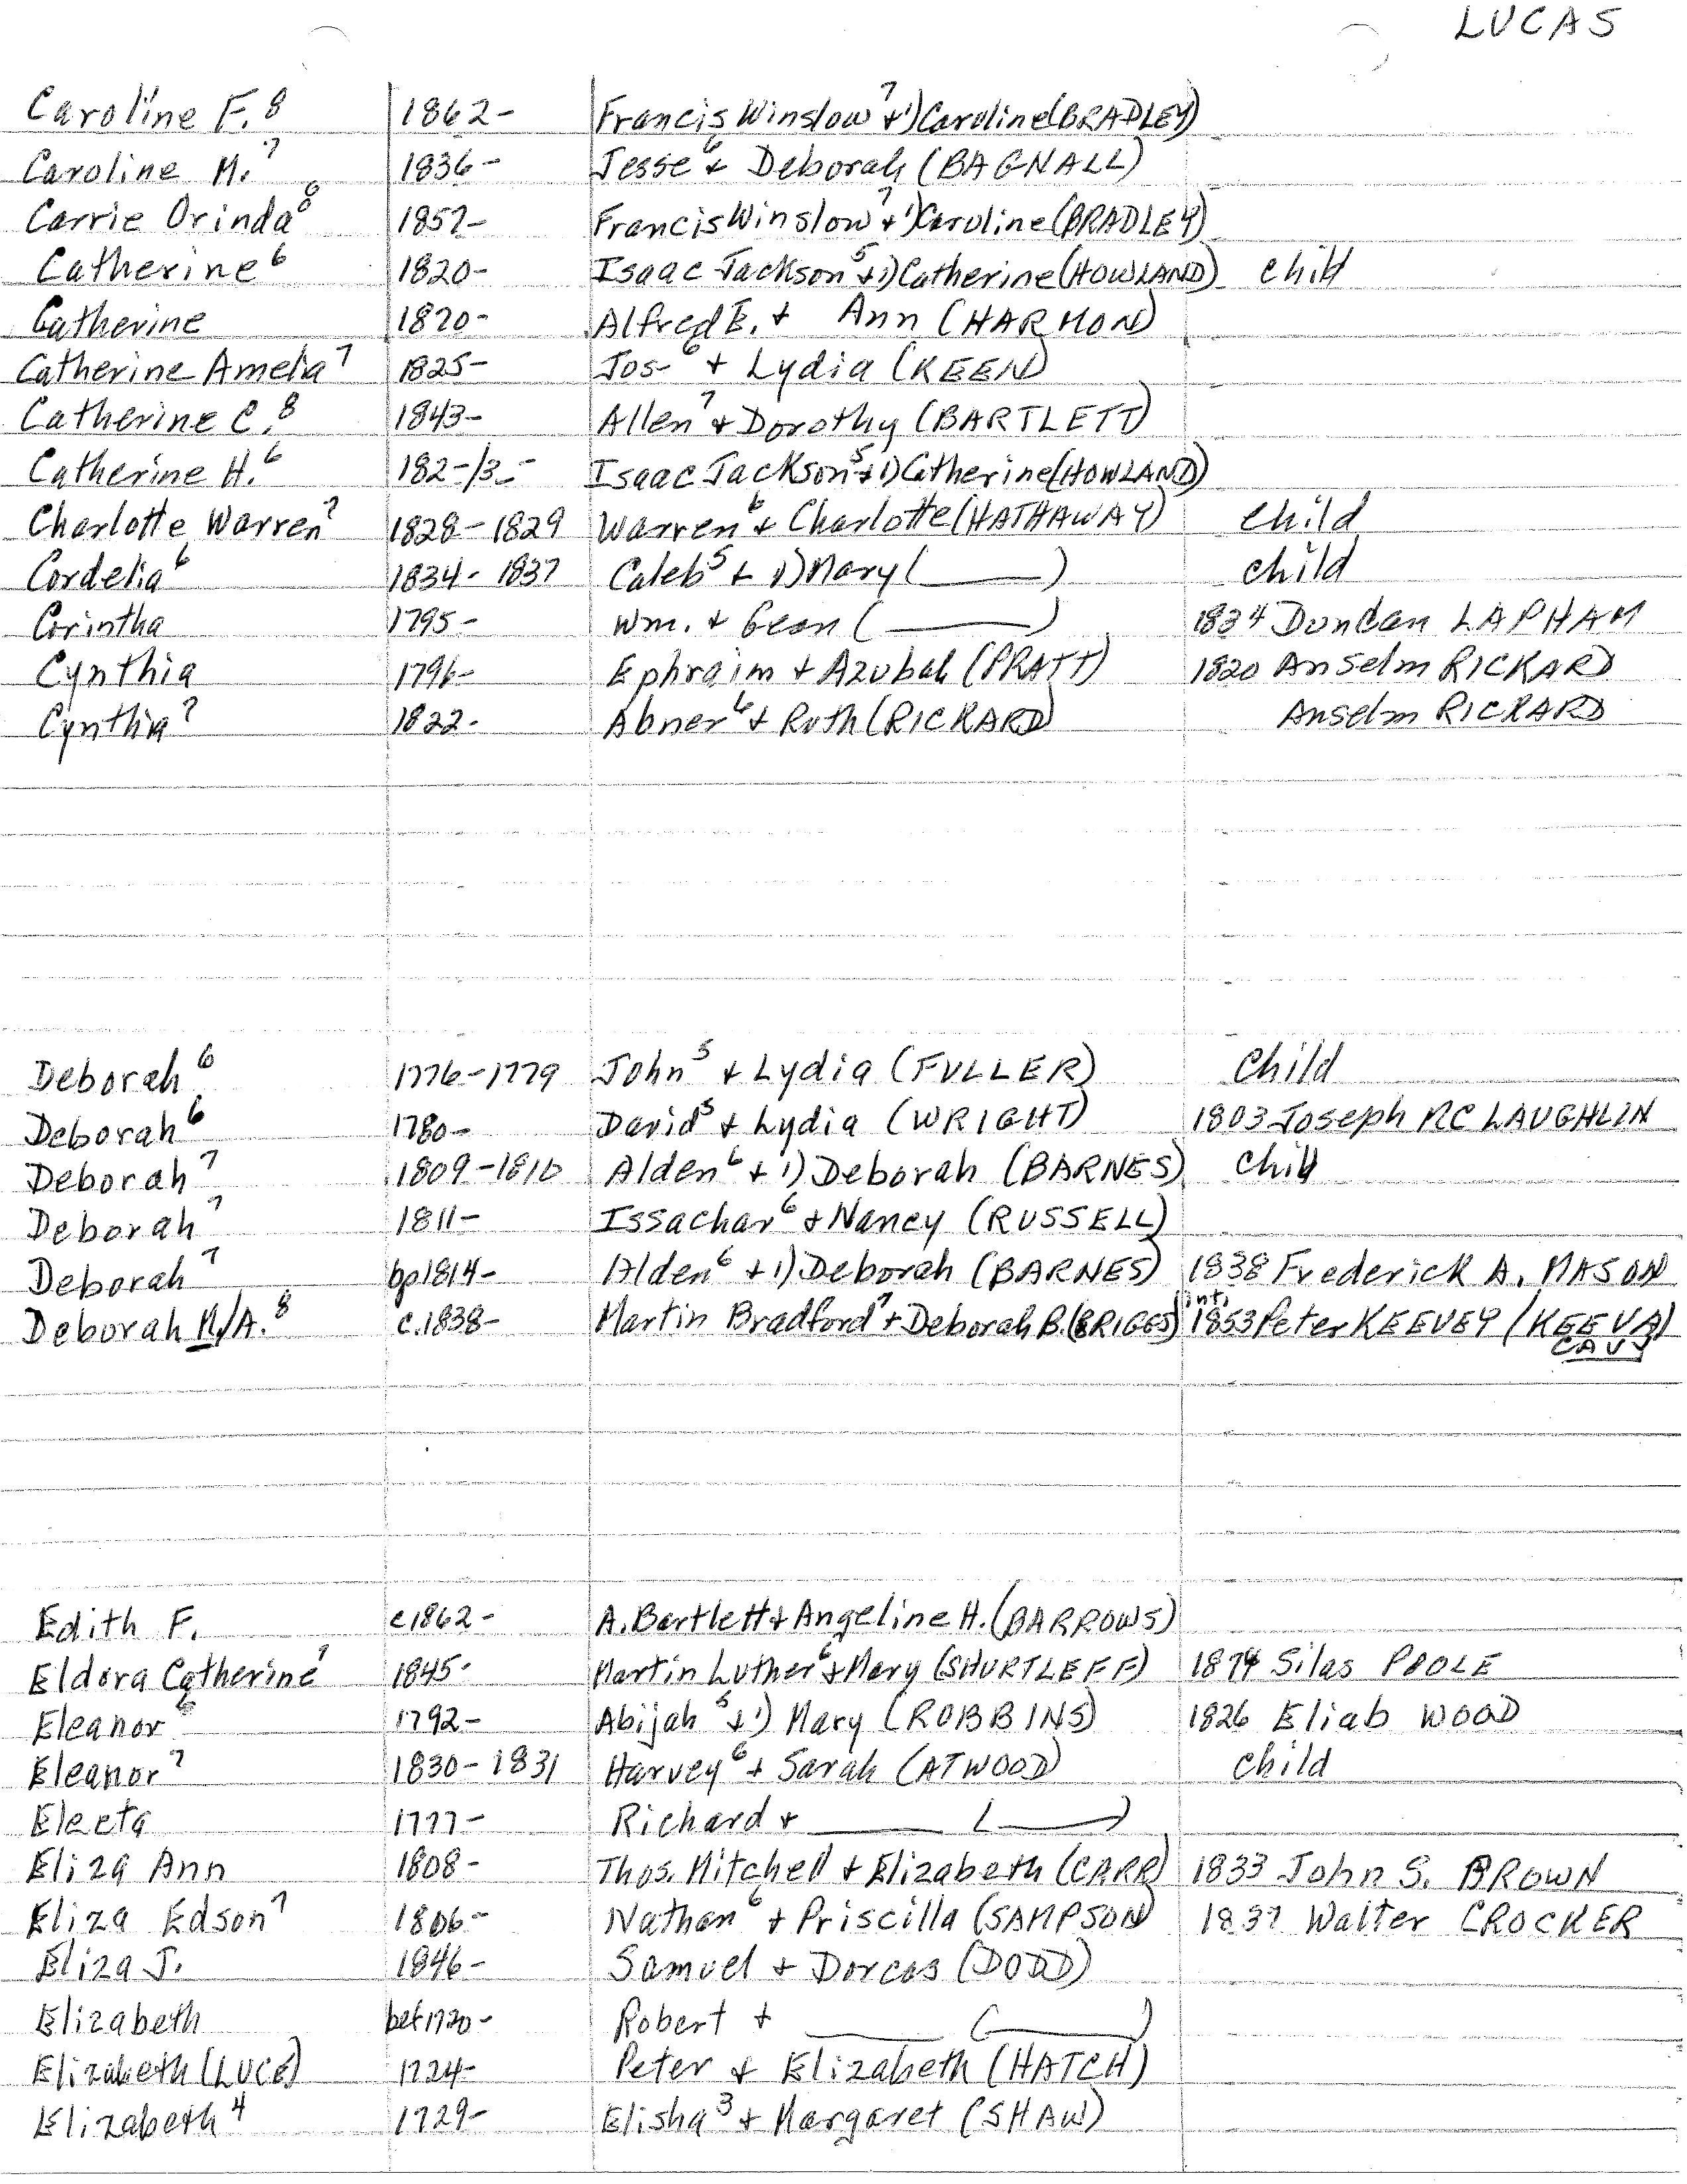 LUCAS
Caroline F.⁸ 1862- Francis Winslow⁷ + 1) Caroline (BRADLEY)
Caroline M.⁷ 1836- Jesse⁶ + Deborah (BAGNALL)
Carrie Orinda⁸ 1857- Francis Winslow⁷ + 1) Caroline (BRADLEY)
Catherine⁶ 1820- Isaac Jackson⁵ + 1) Catherine (HOWLAND) child
Catherine 1870- Alfred E. + Ann (HARMON)
Catherine Amelia⁷ 1825- Jos⁶ + Lydia (KEEN)
Catherine C.⁸ 1843- Allen⁷ + Dorothy (BARTLETT)
Catherine H.⁶ 182-/3- Isaac Jackson⁵ + 1) Catherine (HOWLAND)
Charlotte Warren⁷ 1828-1829 Warren⁶ + Charlotte (HATHAWAY) child
Cordelia⁶ 1834-1837 Caleb⁵ + 1) Mary (____) child
Corintha 1795- Wm. + (____) 1834 Duncan LAPHAM
Cynthia 1796- Ephraim + Azubah (PRATT) 1820 Anselm RICKARD
Cynthia⁷ 1822- Abner⁶ + Ruth (RICKARD) Anselm RICKARD
Deborah⁶ 1776-1779 John⁵ + Lydia (FULLER) Child
Deborah⁶ 1780- David⁵ + Lydia (WRIGHT) 1803 Joseph MC LAUGHLIN
Deborah⁷ 1809-1810 Alden⁶ + 1) Deborah (BARNES) child
Deborah⁷ 1811- Issachar⁶ + Nancy (RUSSELL)
Deborah⁷ bp1814- Alden⁶ + 1) Deborah (BARNES) 1838 Frederick A. MASON
Deborah M/A.⁸ c.1838- Martin Bradford⁷ + Deborah B. (BRIGGS) int. 1853 Peter KEEVEY (KEEVA)
CAVY
Edith F. c1862- A. Bartlett + Angeline H. (BARROWS)
Eldora Catherine⁷ 1845- Martin Luther⁶ + Mary (SHURTLEFF) 1874 Silas POOLE
Eleanor⁶ 1792- Abijah⁵ + 1) Mary (ROBBINS) 1826 Eliab WOOD
Eleanor⁷ 1830-1831 Harvey⁶ + Sarah (ATWOOD) child
Electa 1777- Richard + ____ (____)
Eliza Ann 1808- Thos. Mitchell + Elizabeth (CARR) 1833 John S. BROWN
Eliza Edson⁷ 1806- Nathan⁶ + Priscilla (SAMPSON) 1837 Walter CROCKER
Eliza J. 1846- Samuel + Dorcas (DODD)
Elizabeth bef 1720- Robert + ____ (____)
Elizabeth (LUCE) 1724- Peter + Elizabeth (HATCH)
Elizabeth⁴ 1729- Elisha³ + Margaret (SHAW)